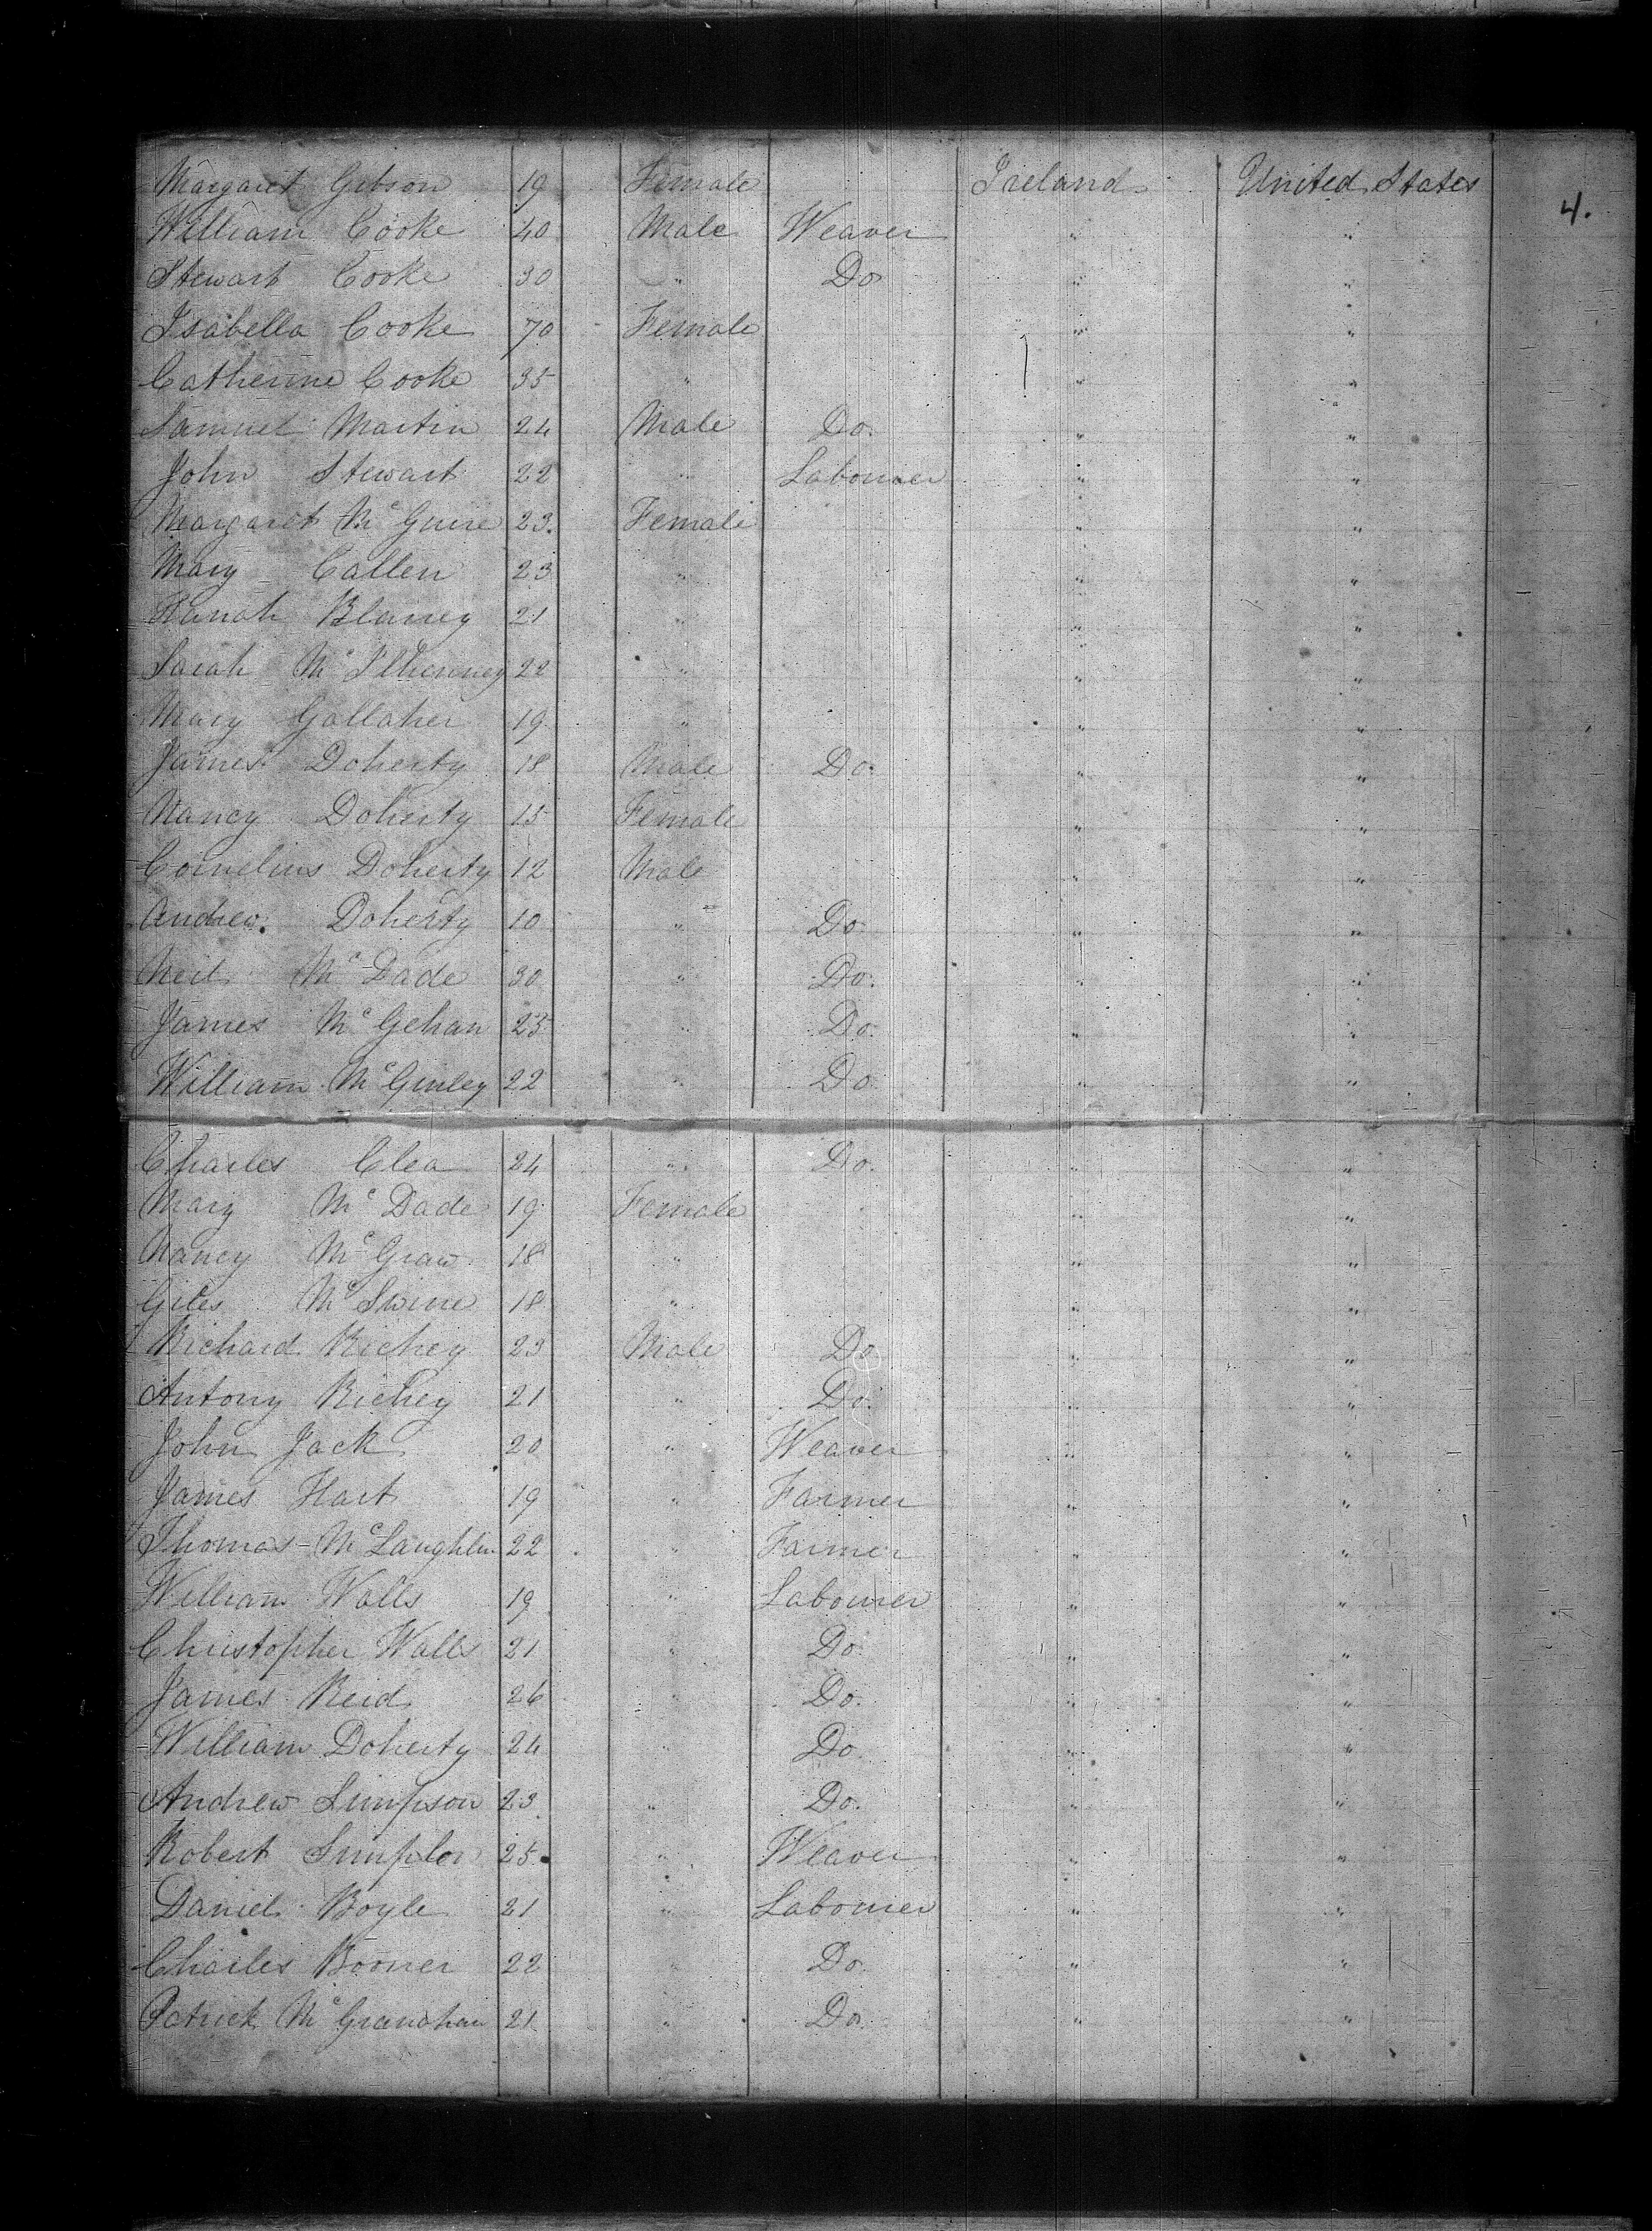 Margaret Gibson 19 Female Ireland United States
4.
William Cooke 40 Male Weaver " "
Stewart Cooke 30 " Do " "
Isabella Cooke 70 Female " "
Catherine Cooke 35 " " "
Samuel Martin 24 Male Do. " "
John Stewart 22 " Labourer " "
Margaret McGuire 23. Female " "
Mary Callen 23 " " "
Hanah Blaney 21 " " "
Sarah McIlhenney 22 " " "
Mary Gallaher 19 " " "
James Doherty 18 Male Do. " "
Nancy Doherty 15 Female " "
Cornelius Doherty 12 Male " "
Andrew. Doherty 10 " Do " "
Neil McDade 30 " Do. " "
James McGehan 25 " Do. " "
William McGinley 22 " Do. " "
Charles Clea 24 " Do. " "
Mary McDade 19 Female " "
Nancy McGraw 18 " " "
Giles McSwine 18 " " "
Richard Richey 23 Male Do " "
Antony Richey 21 " Do. " "
John Jack 20 " Weaver " "
James Hart 19 " Farmer " "
Thomas McLaughlin 22 " Farmer " "
William Walls 19 " Labourer " "
Christopher Walls 21 " Do " "
James Reid 26 " Do. " "
William Doherty 24 " Do " "
Andrew Simpson 23 " Do. " "
Robert 25 " Weaver " "
Daniel Boyle 21 " Labourer " "
Charles Bonner 22 " Do " "
Patrick McGranahan 21 " Do. " "